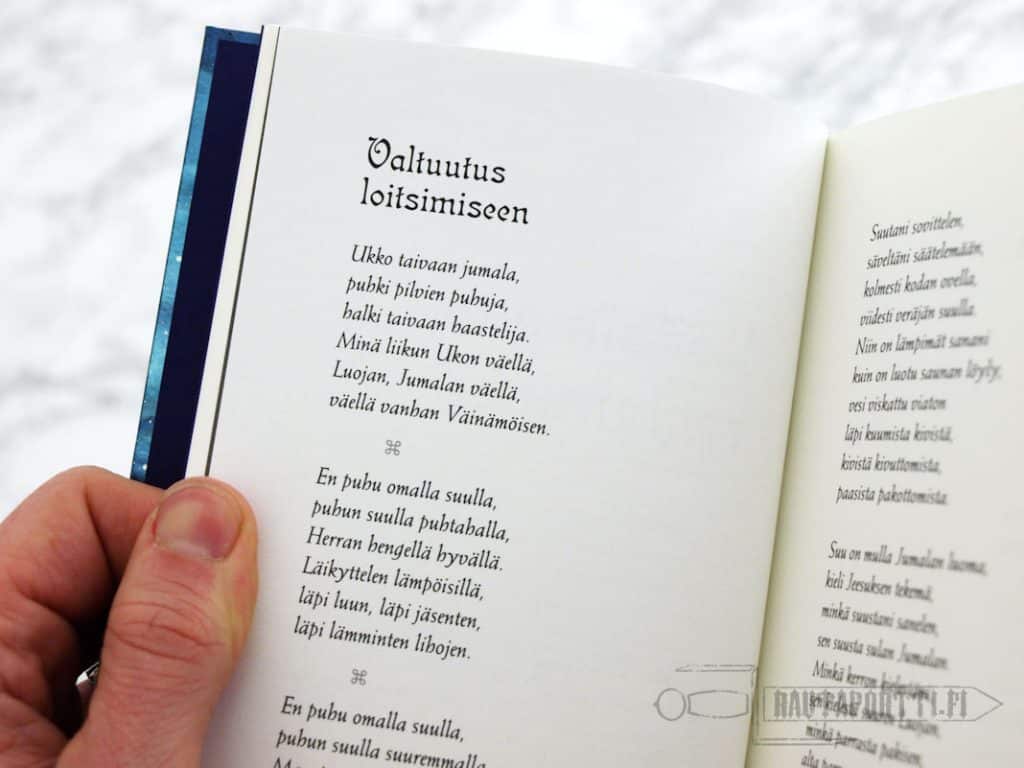 Valtuutus
loitsimiseen
Ukko taivaan jumala,
puhki pilvien puhuja,
halki taivaan haastelija.
Minä liikun Ukon väellä,
Luojan, Jumalan väellä,
väellä vanhan Väinämöisen.
⌘
En puhu omalla suulla,
puhun suulla puhtahalla,
Herran hengellä hyvällä.
Läikyttelen lämpöisillä,
läpi luun, läpi jäsenten,
läpi lämminten lihojen.
⌘
En puhu omalla suulla,
puhun suulla suuremmalla,
Suutani sovittelen,
säveltäni säätelemään,
kolmesti kodan ovella,
viidesti veräjän suulla.
Niin on lämpimät sanani
kuin on luotu saunan löyly,
vesi viskattu viaton
läpi kuumista kivistä,
kivistä kivuttomista,
paasista pakottomista.
Suu on mulla Jumalan luoma,
kieli Jeesuksen tekemä,
minkä suustani sanelen,
sen suusta sulan Jumalan.
Minkä kerron
sen kielestä Luojan,
minkä parrasta pakisen,
alta
RAUTAPORTTI.FI